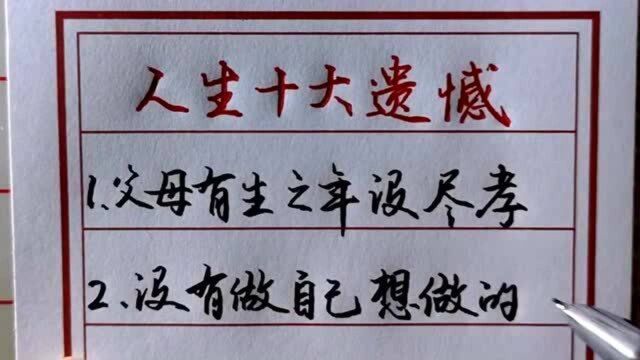 人生十大遗憾
1.父母有生之年没尽孝
2.没有做自己想做的